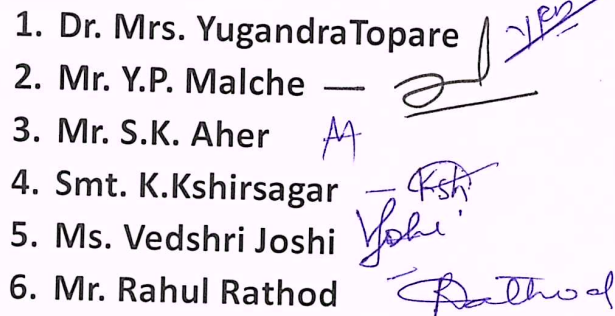 1. Dr. Mrs. YugandraTopare
2. Mr. Y.P. Malche —
3. Mr. S.K. Aher
4. Smt. K.Kshirsagar — Ksh
5. Ms. Vedshri Joshi Vjoshi
6. Mr. Rahul Rathod – Rathod